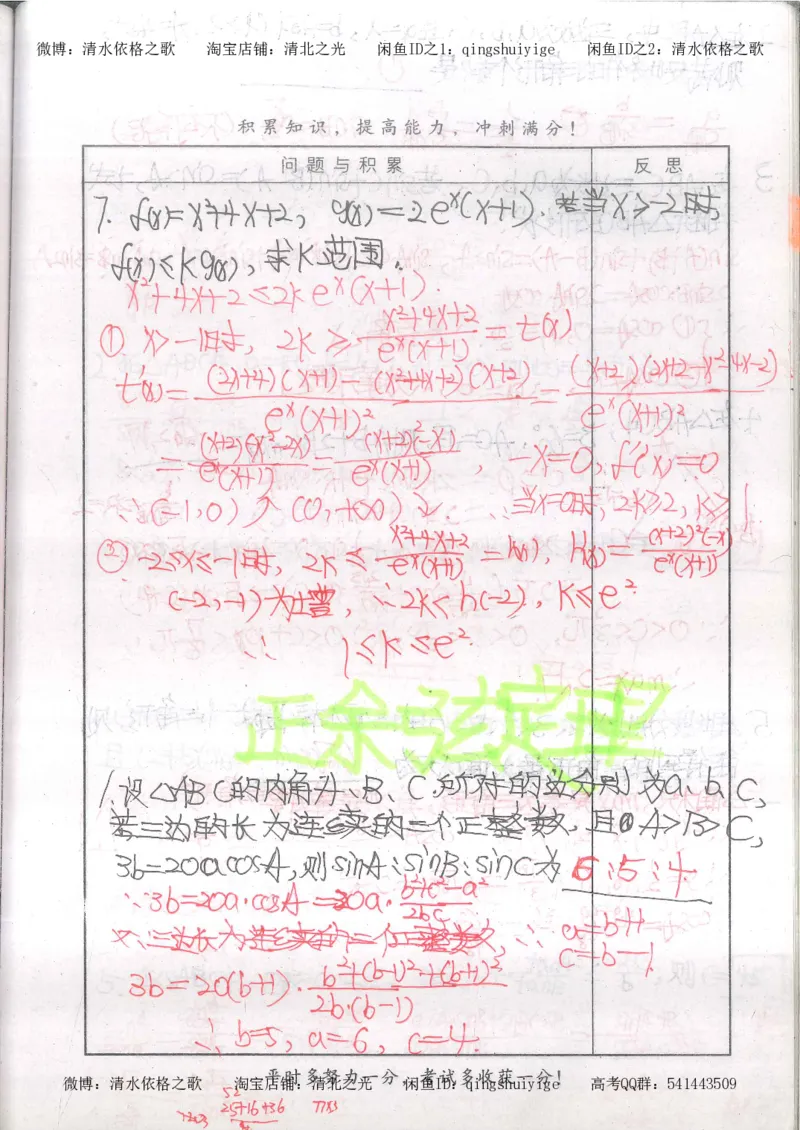 微博：清水依格之歌 淘宝店铺：清北之光 闲鱼ID之1：qingshuiyige 闲鱼ID之2：清水依格之歌
积累知识，提高能力，冲刺满分！
问题与积累 反思
7. f(x)=x²+4x+2, g(x)=2eˣ(x+1). 若当x>-2时,
f(x)≤kg(x), 求k范围.
x²+4x+2≤2keˣ(x+1).
① x>-1时, 2k≥(x²+4x+2)/(eˣ(x+1))=t(x)
t'(x)=((2x+4)(x+1)-(x²+4x+2)(x+2))/(eˣ(x+1)²)=((x+2)(2x+2-x²-4x-2))/(eˣ(x+1)²)
=((x+2)(-x²-2x))/(eˣ(x+1)²)=((x+2)²(-x))/(eˣ(x+1)), -x=0, f'(x)=0
∴(-1,0)↗(0,+∞)↘ ∴当x=0时, 2k≥2, k≥1
② -2≤x≤-1时, 2k≤(x²+4x+2)/(eˣ(x+1))=h(x), h'(x)=((x+2)²(-x))/(eˣ(x+1))
(-2,-1)为增, ∴2k≤h(-2), k≤e²
∴ 1≤k≤e²
正余弦定理
1.设△ABC的内角A、B、C所对的边分别为a,b,c,
若三边的长为连续的三个正整数,且A>B>C,
3b=20acosA,则sinA:sinB:sinC为 6:5:4
∵3b=20a·cosA=20a·(b²+c²-a²)/(2bc)
又∵三边长为连续的三个正整数, ∴ a=b+1
c=b-1
3b=20(b+1)·(b²+(b-1)²+(b+1)²)/(2b·(b-1))
∴ b=5, a=6, c=4.
平时多努力一分，考试多收获一分！
微博：清水依格之歌 淘宝店铺：清北之光 闲鱼ID之1：qingshuiyige 高考QQ群：541443509
52
25+16+36